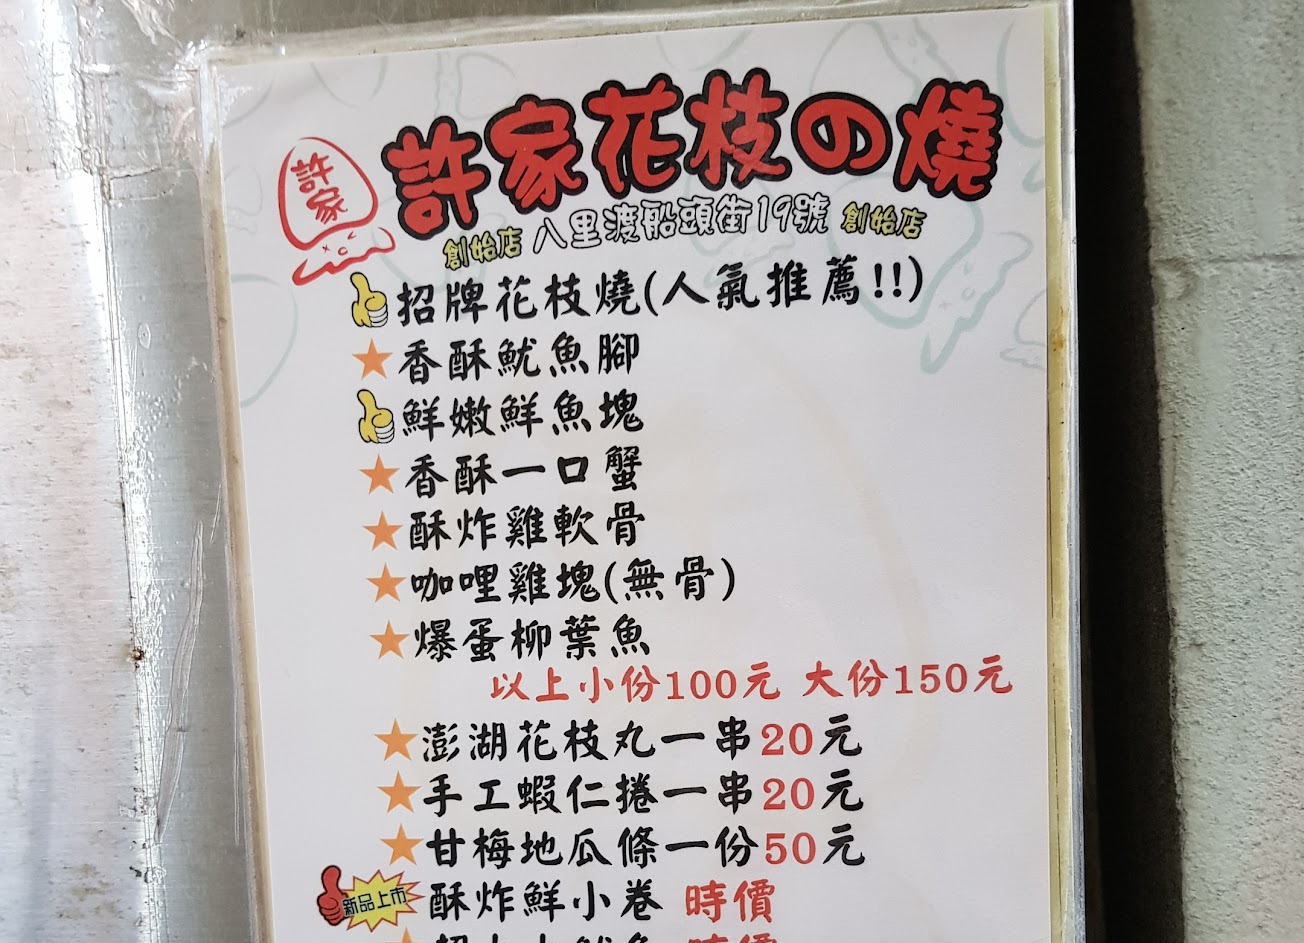 許家
許家花枝の燒
創始店 八里渡船頭街19號 創始店
招牌花枝燒(人氣推薦!!)
香酥魷魚腳
鮮嫩鮮魚塊
香酥一口蟹
酥炸雞軟骨
咖哩雞塊(無骨)
爆蛋柳葉魚
以上小份100元 大份150元
澎湖花枝丸一串20元
手工蝦仁捲一串20元
甘梅地瓜條一份50元
新品上市 酥炸鮮小卷 時價